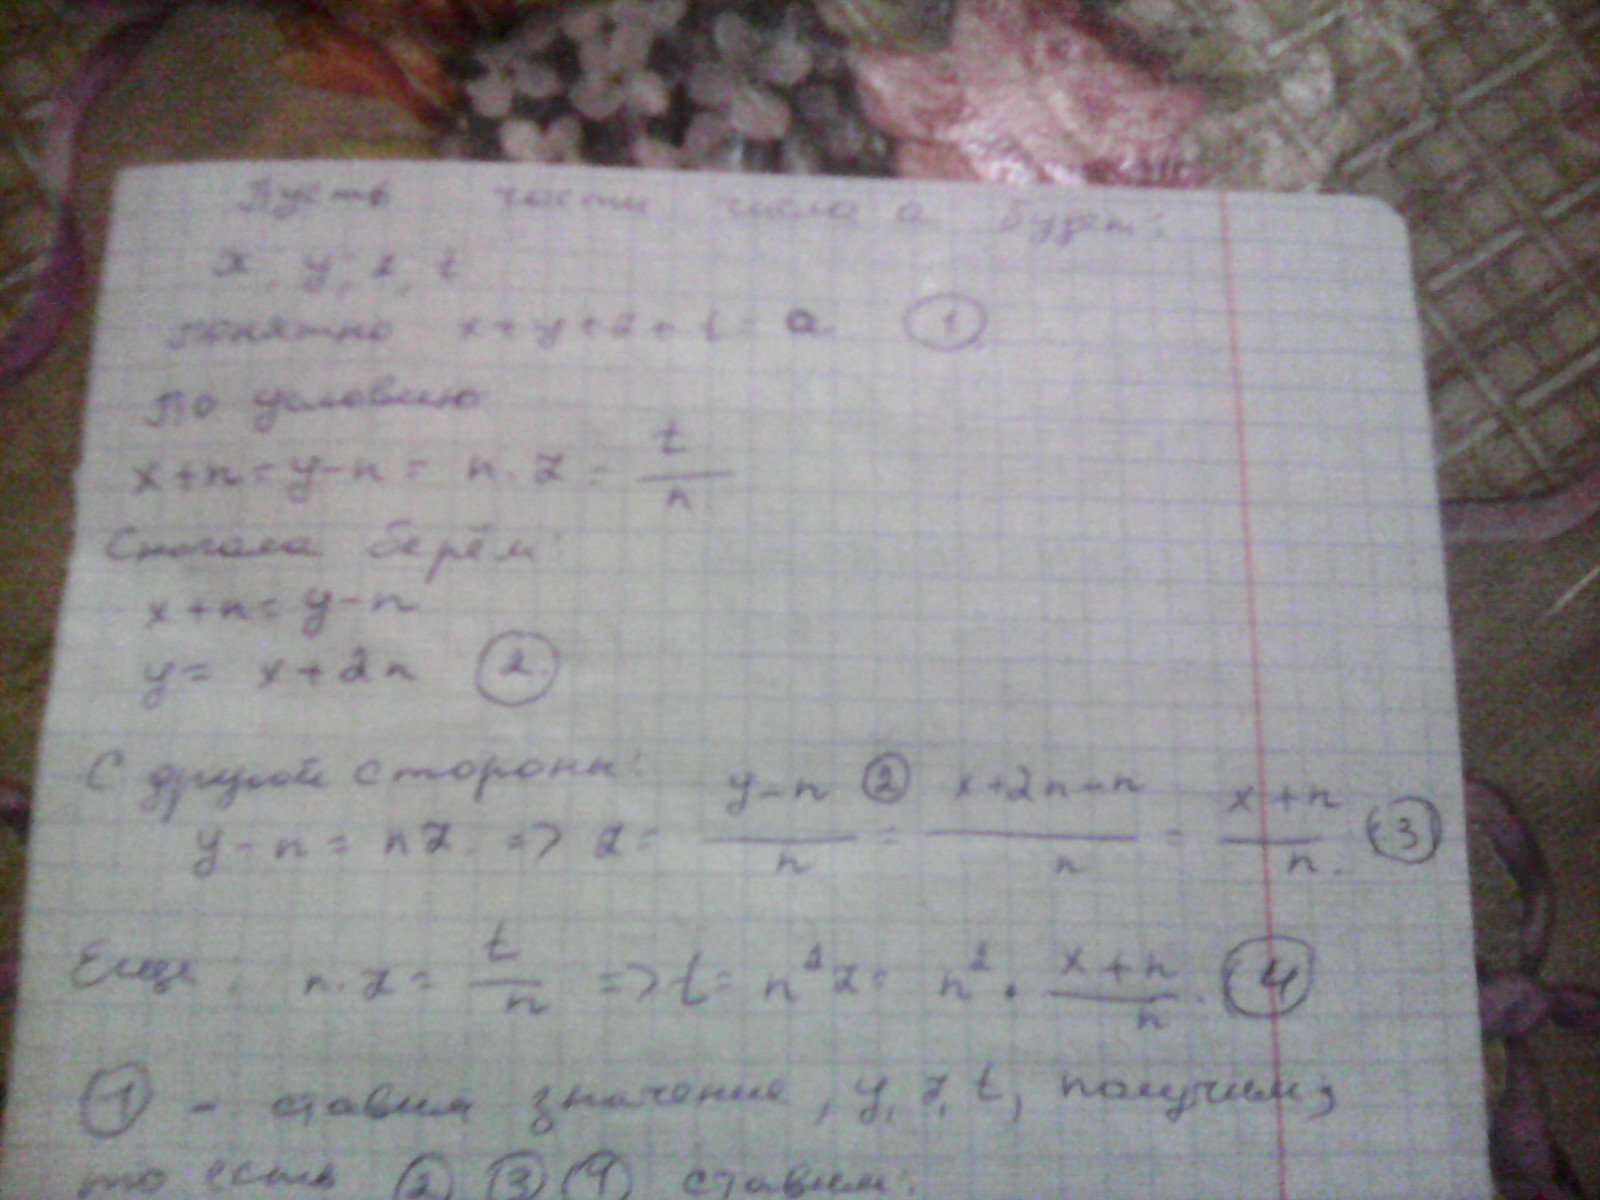 Пусть части числа a будет:
x, y, z, t
понятно x+y+z+t=a ①
По условию
x+n=y-n= n·z= t/n
Сначала берём:
x+n=y-n
y= x+2n ②
С другой стороны:
y-n=nz. => z= (y-n)/n ②= (x+2n-n)/n = (x+n)/n. ③
Еще: n·z= t/n => t= n²z= n²·(x+n)/n. ④
① - ставим значение, y, z, t, получим;
то есть ② ③ ④ ставим: